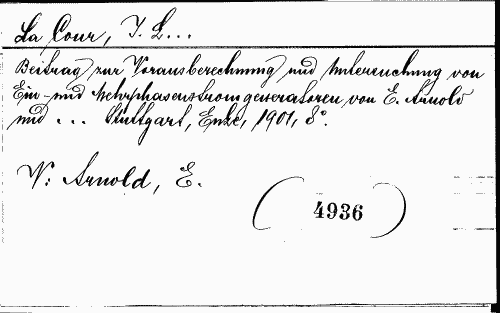 La Cour, J. L...
Beitrag zur Vorausberechnung und Untersuchung von
Ein- und Mehrphasenstromgeneratoren von E. Arnold
und ... Stuttgart, Enke, 1901, 8°.
V: Arnold, E.
4936